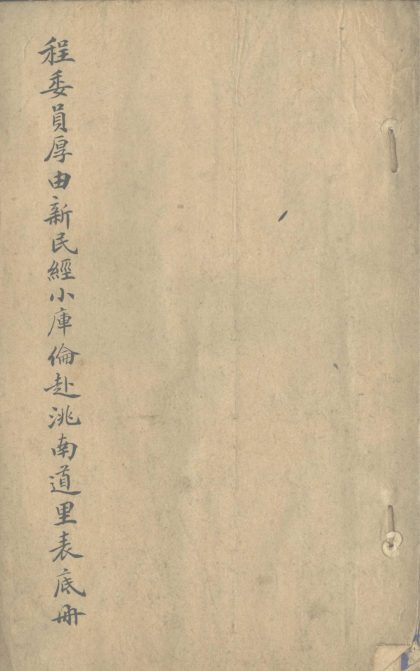 程委員厚由新民經小庫倫赴洮南道里表底冊